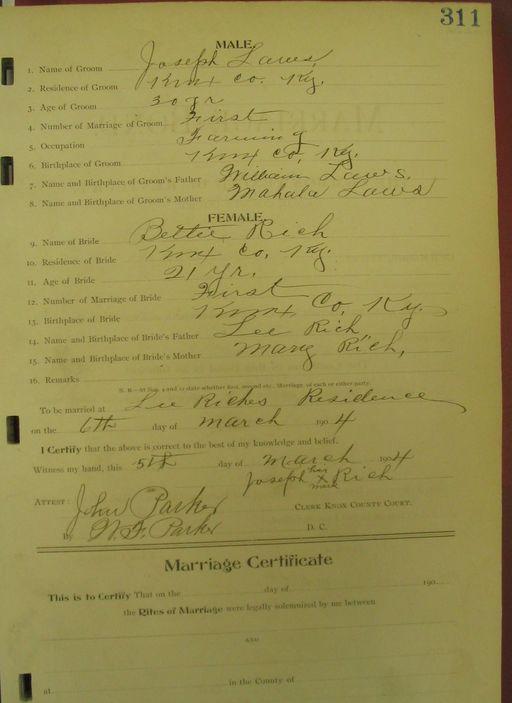 311
MALE.
1. Name of Groom Joseph Laws,
2. Residence of Groom Knox Co. Ky.
3. Age of Groom 30 yr
4. Number of Marriage of Groom First
5. Occupation Farming
6. Birthplace of Groom Knox Co, Ky.
7. Name and Birthplace of Groom's Father William Laws.
8. Name and Birthplace of Groom's Mother Mahala Laws
FEMALE.
9. Name of Bride Bettie Rich
10. Residence of Bride Knox Co, Ky.
11. Age of Bride 21 yr.
12. Number of Marriage of Bride First
13. Birthplace of Bride Knox Co, Ky.
14. Name and Birthplace of Bride's Father Lee Rich,
15. Name and Birthplace of Bride's Mother Mary Rich,
16. Remarks
N. B.—At Nos. 4 and 12 state whether first, second etc., Marriage, of each or either party.
To be married at Lee Riches Residence
on the 6th day of March 190 4
I Certify that the above is correct to the best of my knowledge and belief.
Witness my hand, this 5th day of March 1904
Joseph his x mark Rich
ATTEST: John Parker CLERK KNOX COUNTY COURT.
By W. F. Parker D. C.
Marriage Certificate
This is to Certify That on the day of 190
the Rites of Marriage were legally solemnized by me between
AND
at in the County of